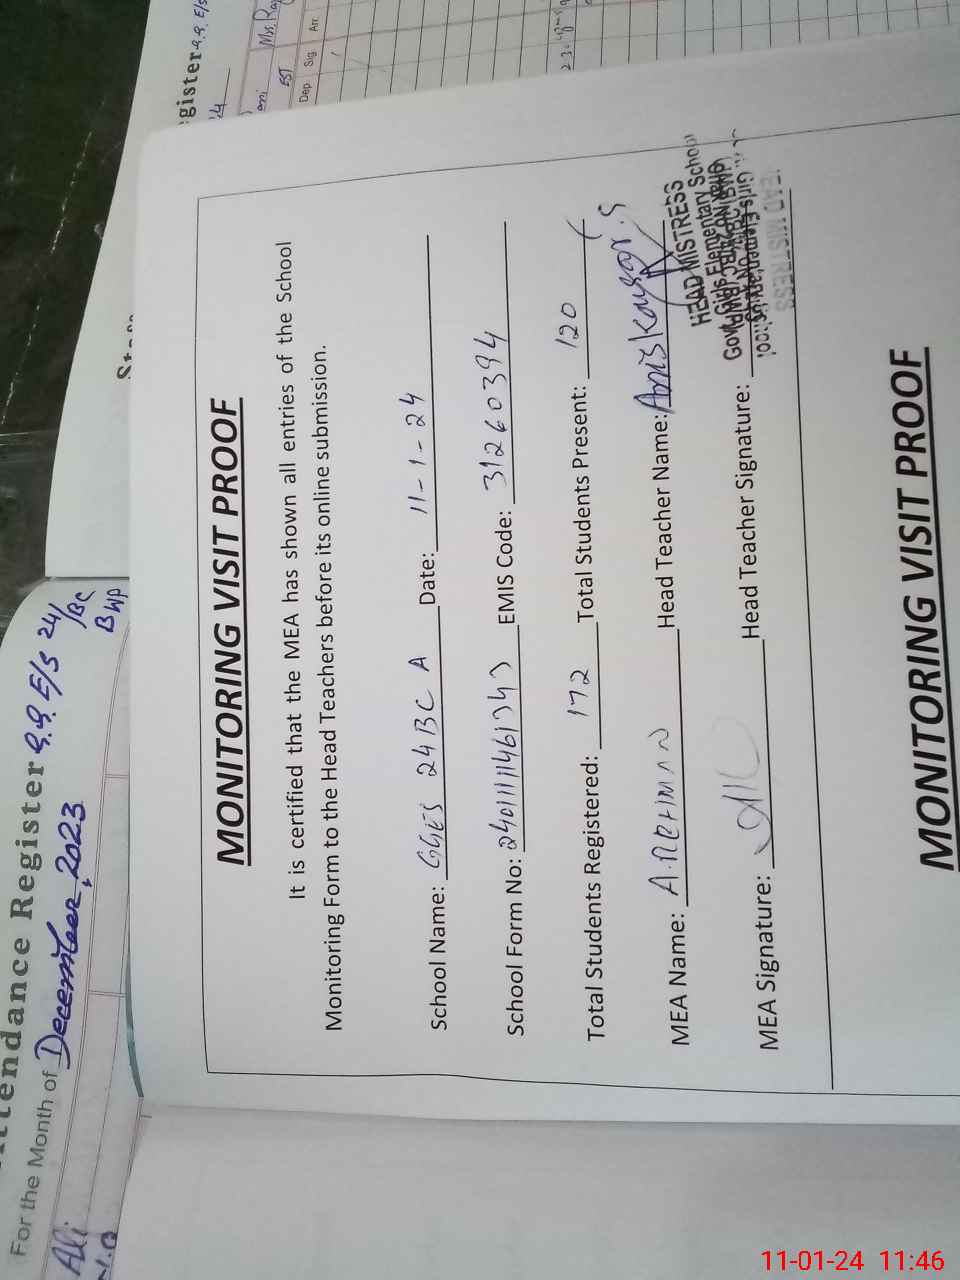 MONITORING VISIT PROOF
It is certified that the MEA has shown all entries of the School
Monitoring Form to the Head Teachers before its online submission.
School Name: GGES 24 BC A Date: 11-1-24
School Form No: EMIS Code: 31260394
Total Students Registered: 172 Total Students Present: 120
MEA Name: A. REHMAN Head Teacher Name: Anis Kousar
MEA Signature: Head Teacher Signature:
HEAD MISTRESS
Girls Elementary School
HEAD MISTRESS
MONITORING VISIT PROOF
Attendance Register G.G. E/S 24/BC
BWP
For the Month of December, 2023
Ali
egister G.G. E/S
Dep. Sig Arr.
EST
11-01-24 11:46